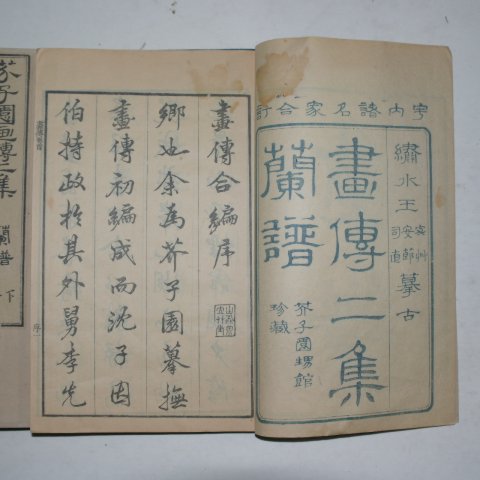 宇內諸名家合訂
繡水王宓草安節司直摹古
畫傳二集
蘭譜
芥子園甥館
珍藏
畫傳合編序
鄉也余為芥子園摹撫
畫傳初編成而沈子因
伯持政於其外舅李先
序
芥子園畫傳二集
蘭譜
下